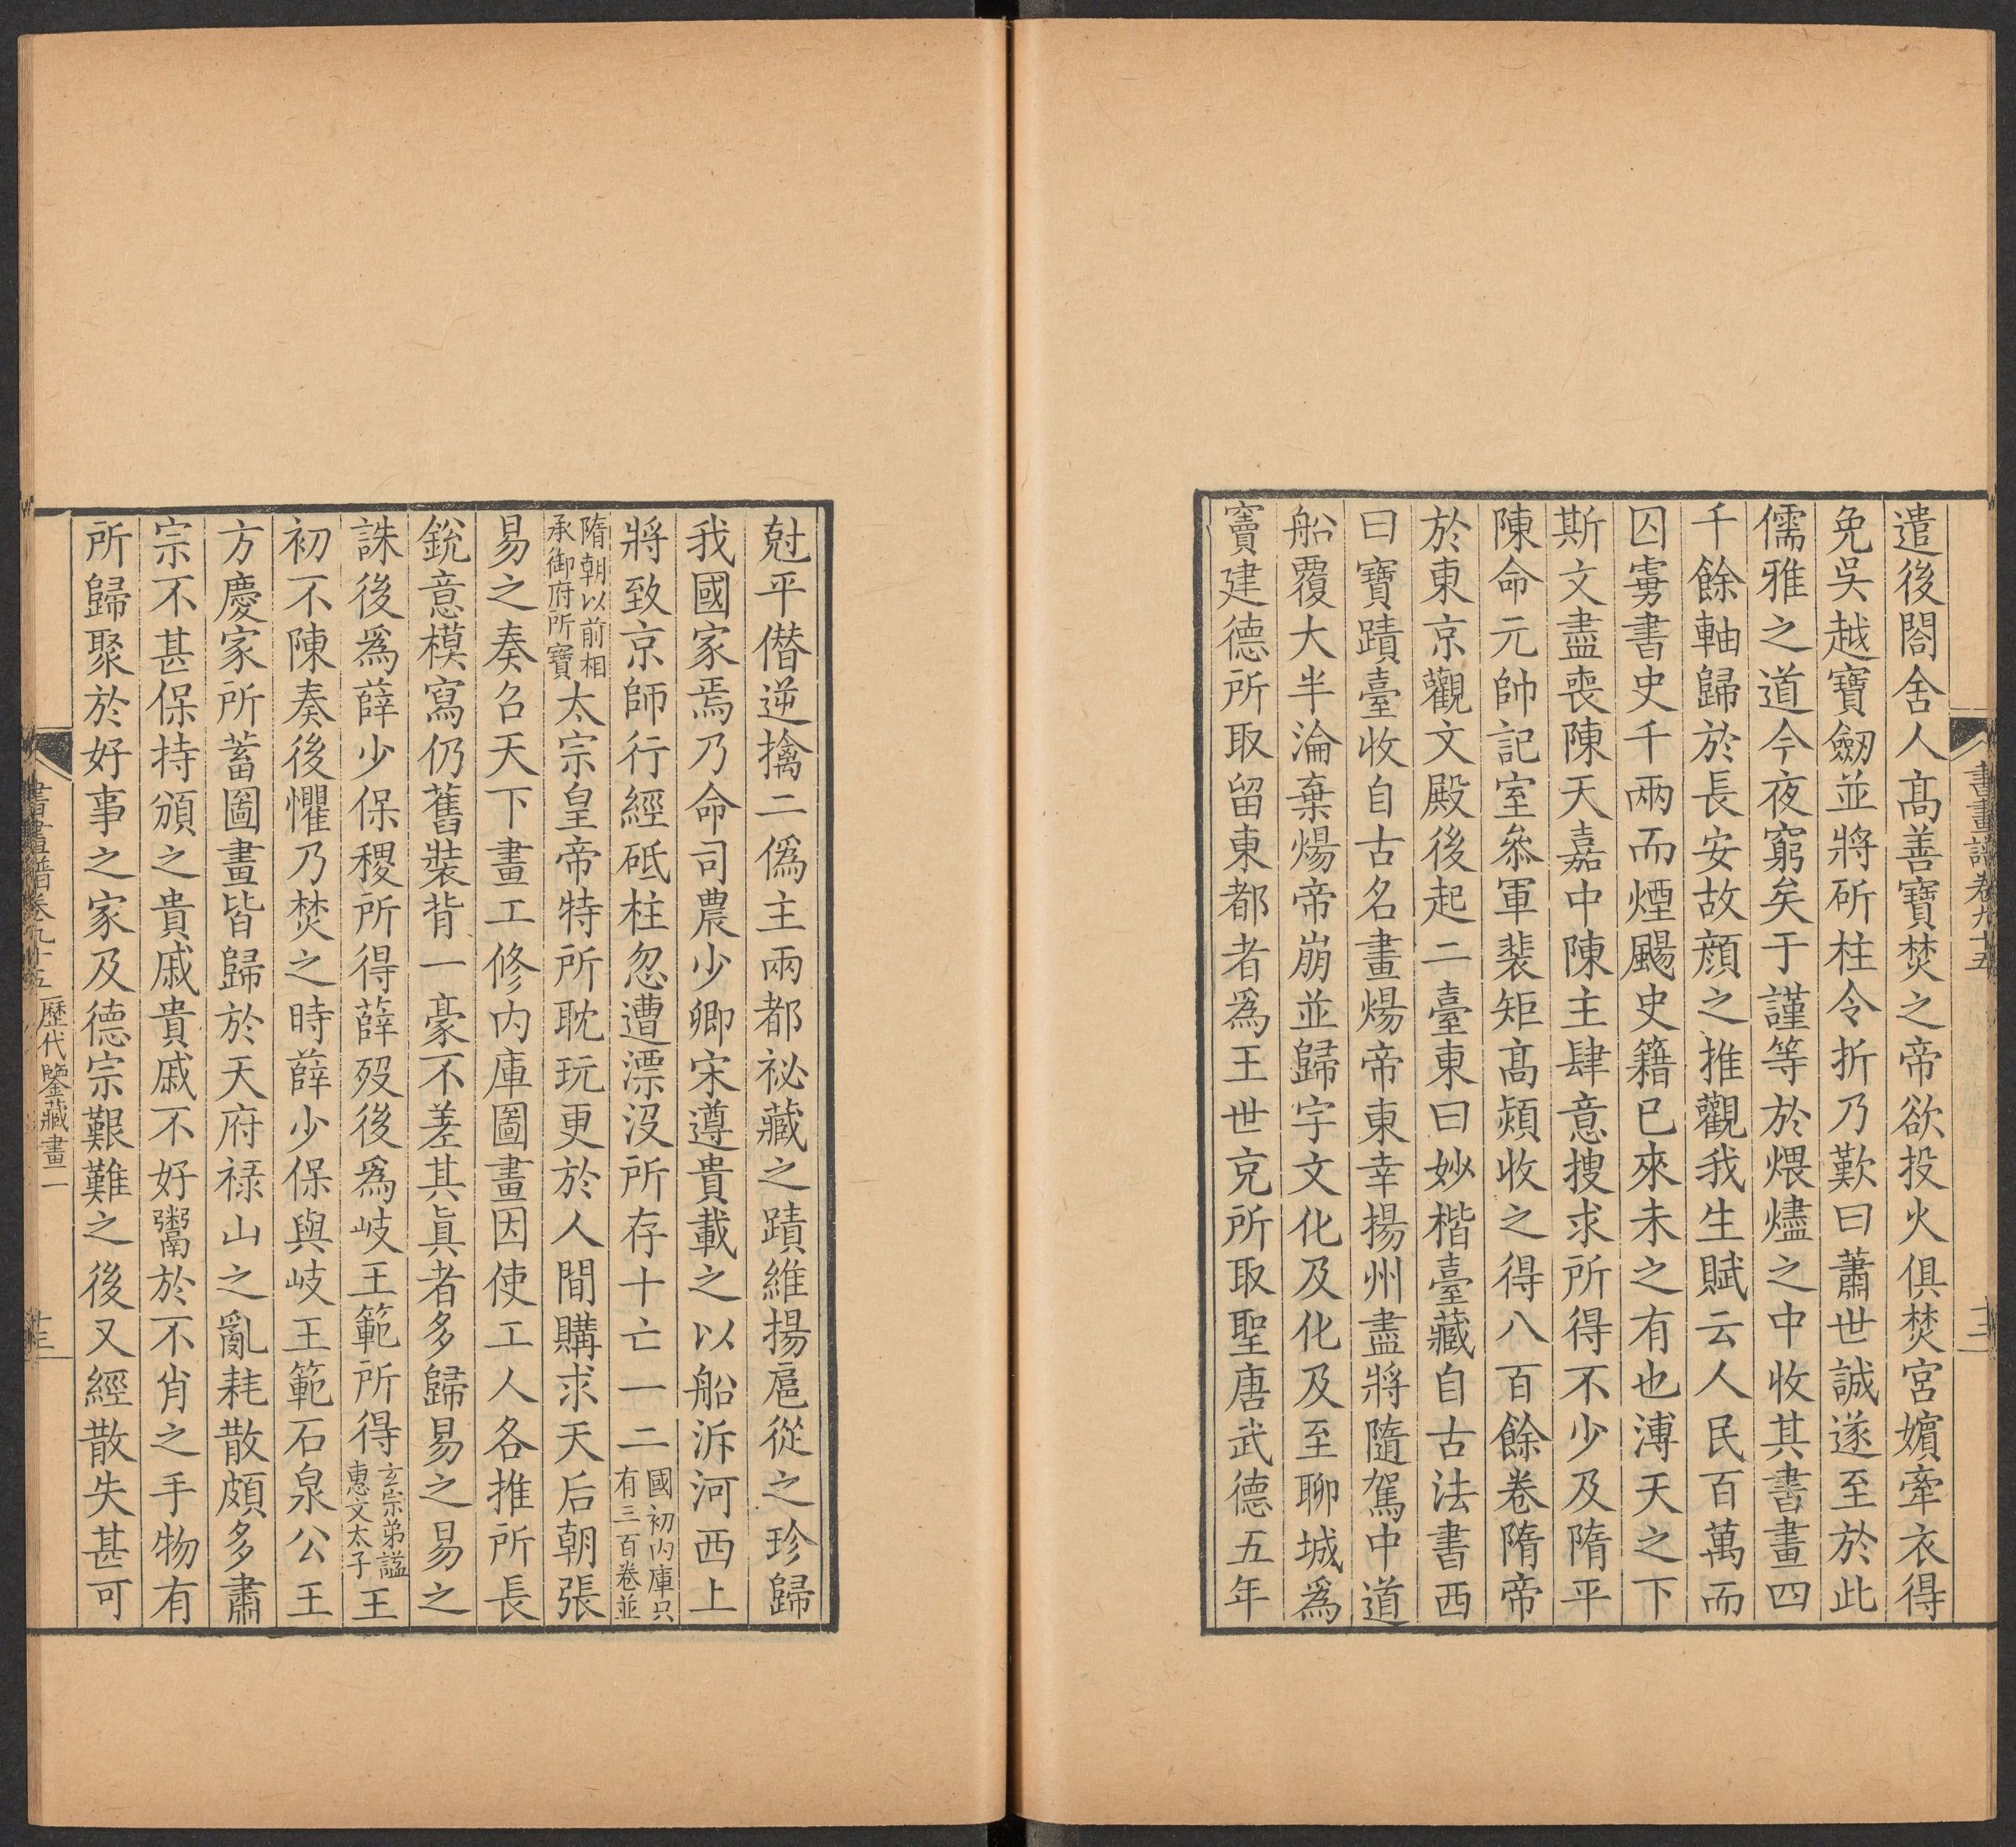 書畫譜卷九十五
十二
遣後閤舍人髙善寶焚之帝欲投火俱焚宮嬪牽衣得
免吳越寶劒並將斫柱令折乃歎曰蕭世誠遂至於此
儒雅之道今夜窮矣于謹等於煨燼之中收其書畫四
千餘軸歸於長安故顔之推觀我生賦云人民百萬而
囚虜書史千兩而煙颺史籍已來未之有也溥天之下
斯文盡喪陳天嘉中陳主肆意搜求所得不少及隋平
陳命元帥記室叅軍裴矩髙熲收之得八百餘卷隋帝
於東京觀文殿後起二臺東曰妙楷臺藏自古法書西
曰寶蹟臺收自古名畫煬帝東幸揚州盡將隨駕中道
船覆大半淪棄煬帝崩並歸宇文化及化及至聊城爲
竇建德所取留東都者爲王世充所取聖唐武德五年
尅平僭逆擒二僞主兩都祕藏之蹟維揚扈從之珍歸
我國家焉乃命司農少卿宋遵貴載之以船泝河西上
將致京師行經砥柱忽遭漂沒所存十亡一二國初内庫只有三百卷並
隋朝以前相承御府所寶太宗皇帝特所耽玩更於人間購求天后朝張
易之奏召天下畫工修内庫圖畫因使工人各推所長
銳意模寫仍舊裝背一豪不差其眞者多歸易之易之
誅後爲薛少保稷所得薛殁後爲岐王範所得玄宗弟謚惠文太子王
初不陳奏後懼乃焚之時薛少保與岐王範石泉公王
方慶家所蓄圖畫皆歸於天府禄山之亂耗散頗多肅
宗不甚保持頒之貴戚貴戚不好鬻於不肖之手物有
所歸聚於好事之家及德宗艱難之後又經散失甚可
書畫譜卷九十五
歷代鑒藏畫一
十三